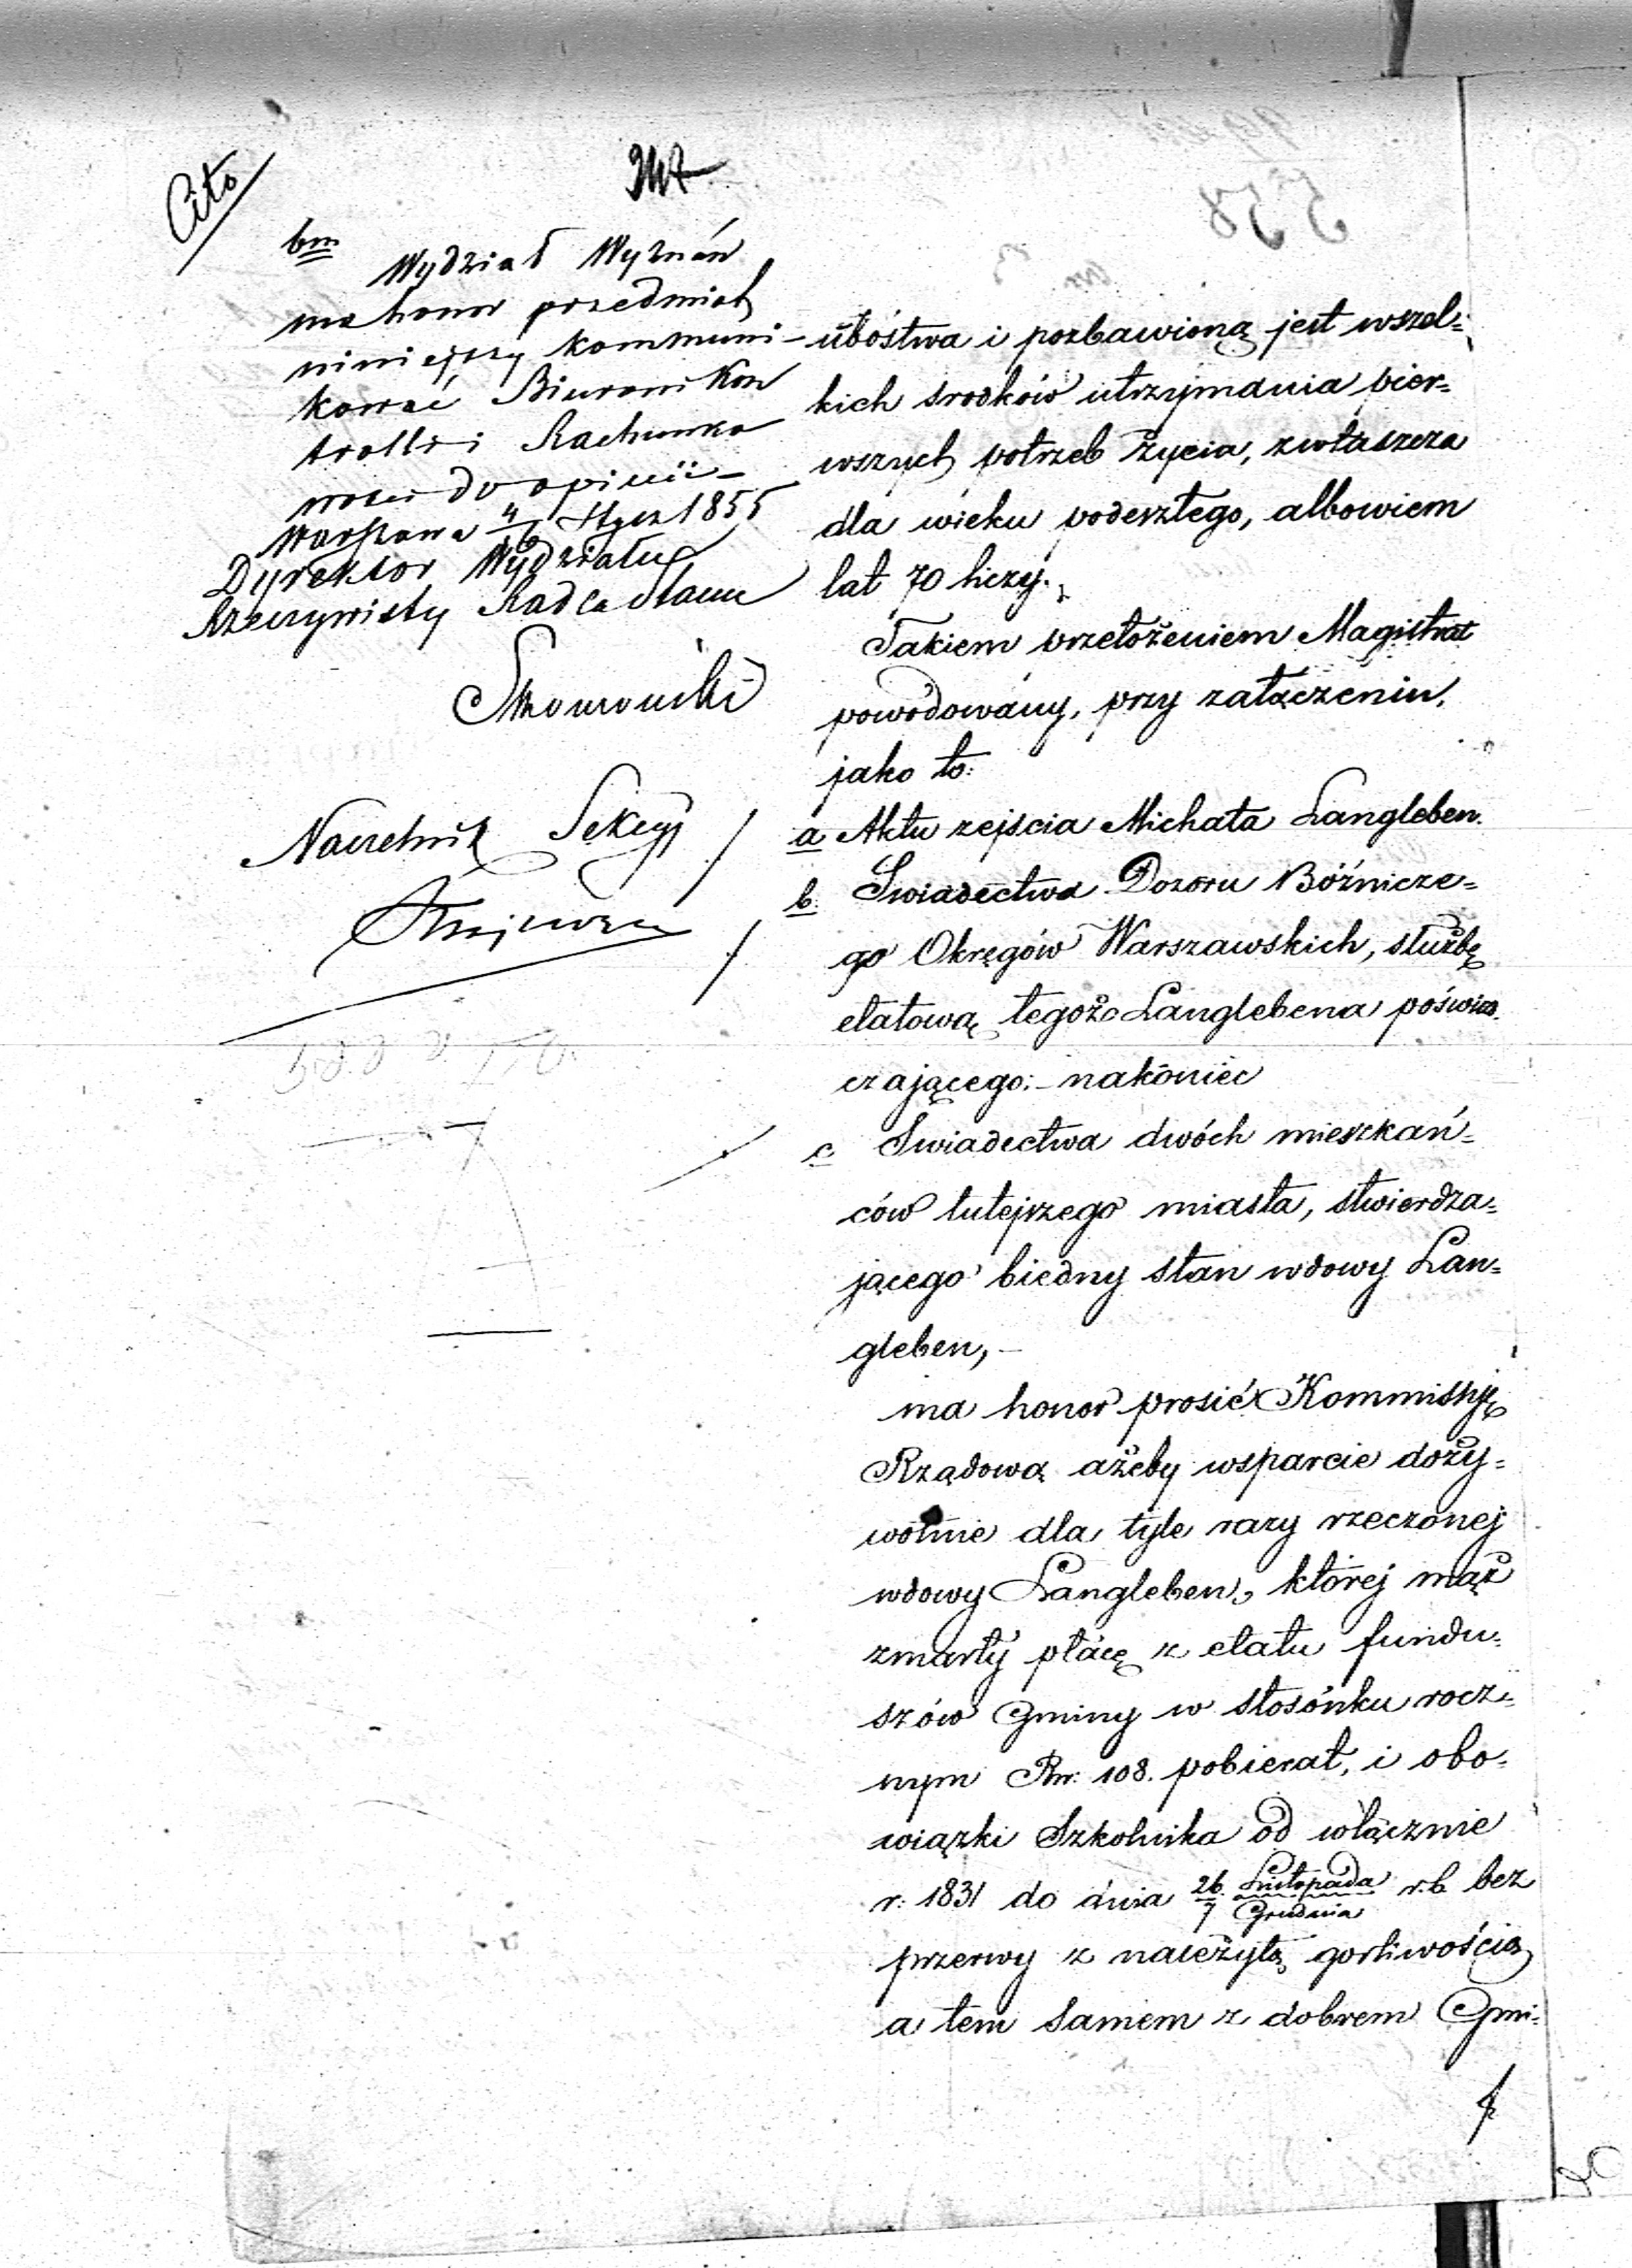 Cito
bm
Wydział Wyznań
ma honor przedmiot
niniejszy kommuni-
kować Biurowi Kon
trolli i Rachunko
wości do opinii –
Warszawa 4/16 Stycz 1855
Dyrektor Wydziału
Rzeczywisty Radca Stanu
Naczelnik Sekcyi
ubóstwa i pozbawioną jest wszel=
kich środków utrzymania pier=
wszych potrzeb życia, zwłaszcza
dla wieku podeszłego, albowiem
lat 70 liczy.
Takiem przełożeniem Magistrat
powodowany, przy załączeniu,
jako to:
a Aktu zejścia Michała Langleben.
b. Świadectwa Dozoru Bóźnicze=
go Okręgów Warszawskich, służbę
etatową tegoż Langlebena poświad
czającego: – nakoniec
c Świadectwa dwóch mieszkań=
ców tutejszego miasta, stwierdza=
jącego biedny stan wdowy Lan=
gleben, –
ma honor prosić Kommissyę
Rządową ażeby wsparcie doży=
wotnie dla tyle razy rzeczonej
wdowy Langleben, której mąż
zmarły płacę z etatu fundu=
szów Gminy w stosónku rocz=
nym Rsr: 108. pobierał, i obo=
wiązki Szkolnika od włącznie
r: 1831 do dnia 26 Listopada/7 Grudnia r.b bez
przerwy z należytą gorliwością
a tem samem z dobrem Gmi=